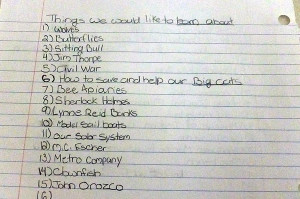 Things we would like to learn about
1) Wolves
2) Butterflies
3) Sitting Bull
4) Jim Thorpe
5) Civil War
6) How to save and help our Big cats
7) Bee Apiaries
8) Sherlock Holmes
9) Lynne Reid Banks
10) Model sail boats
11) Our Solar System
12) M.C. Escher
13) Metro Company
14) Clownfish
15) John Orozco
16)